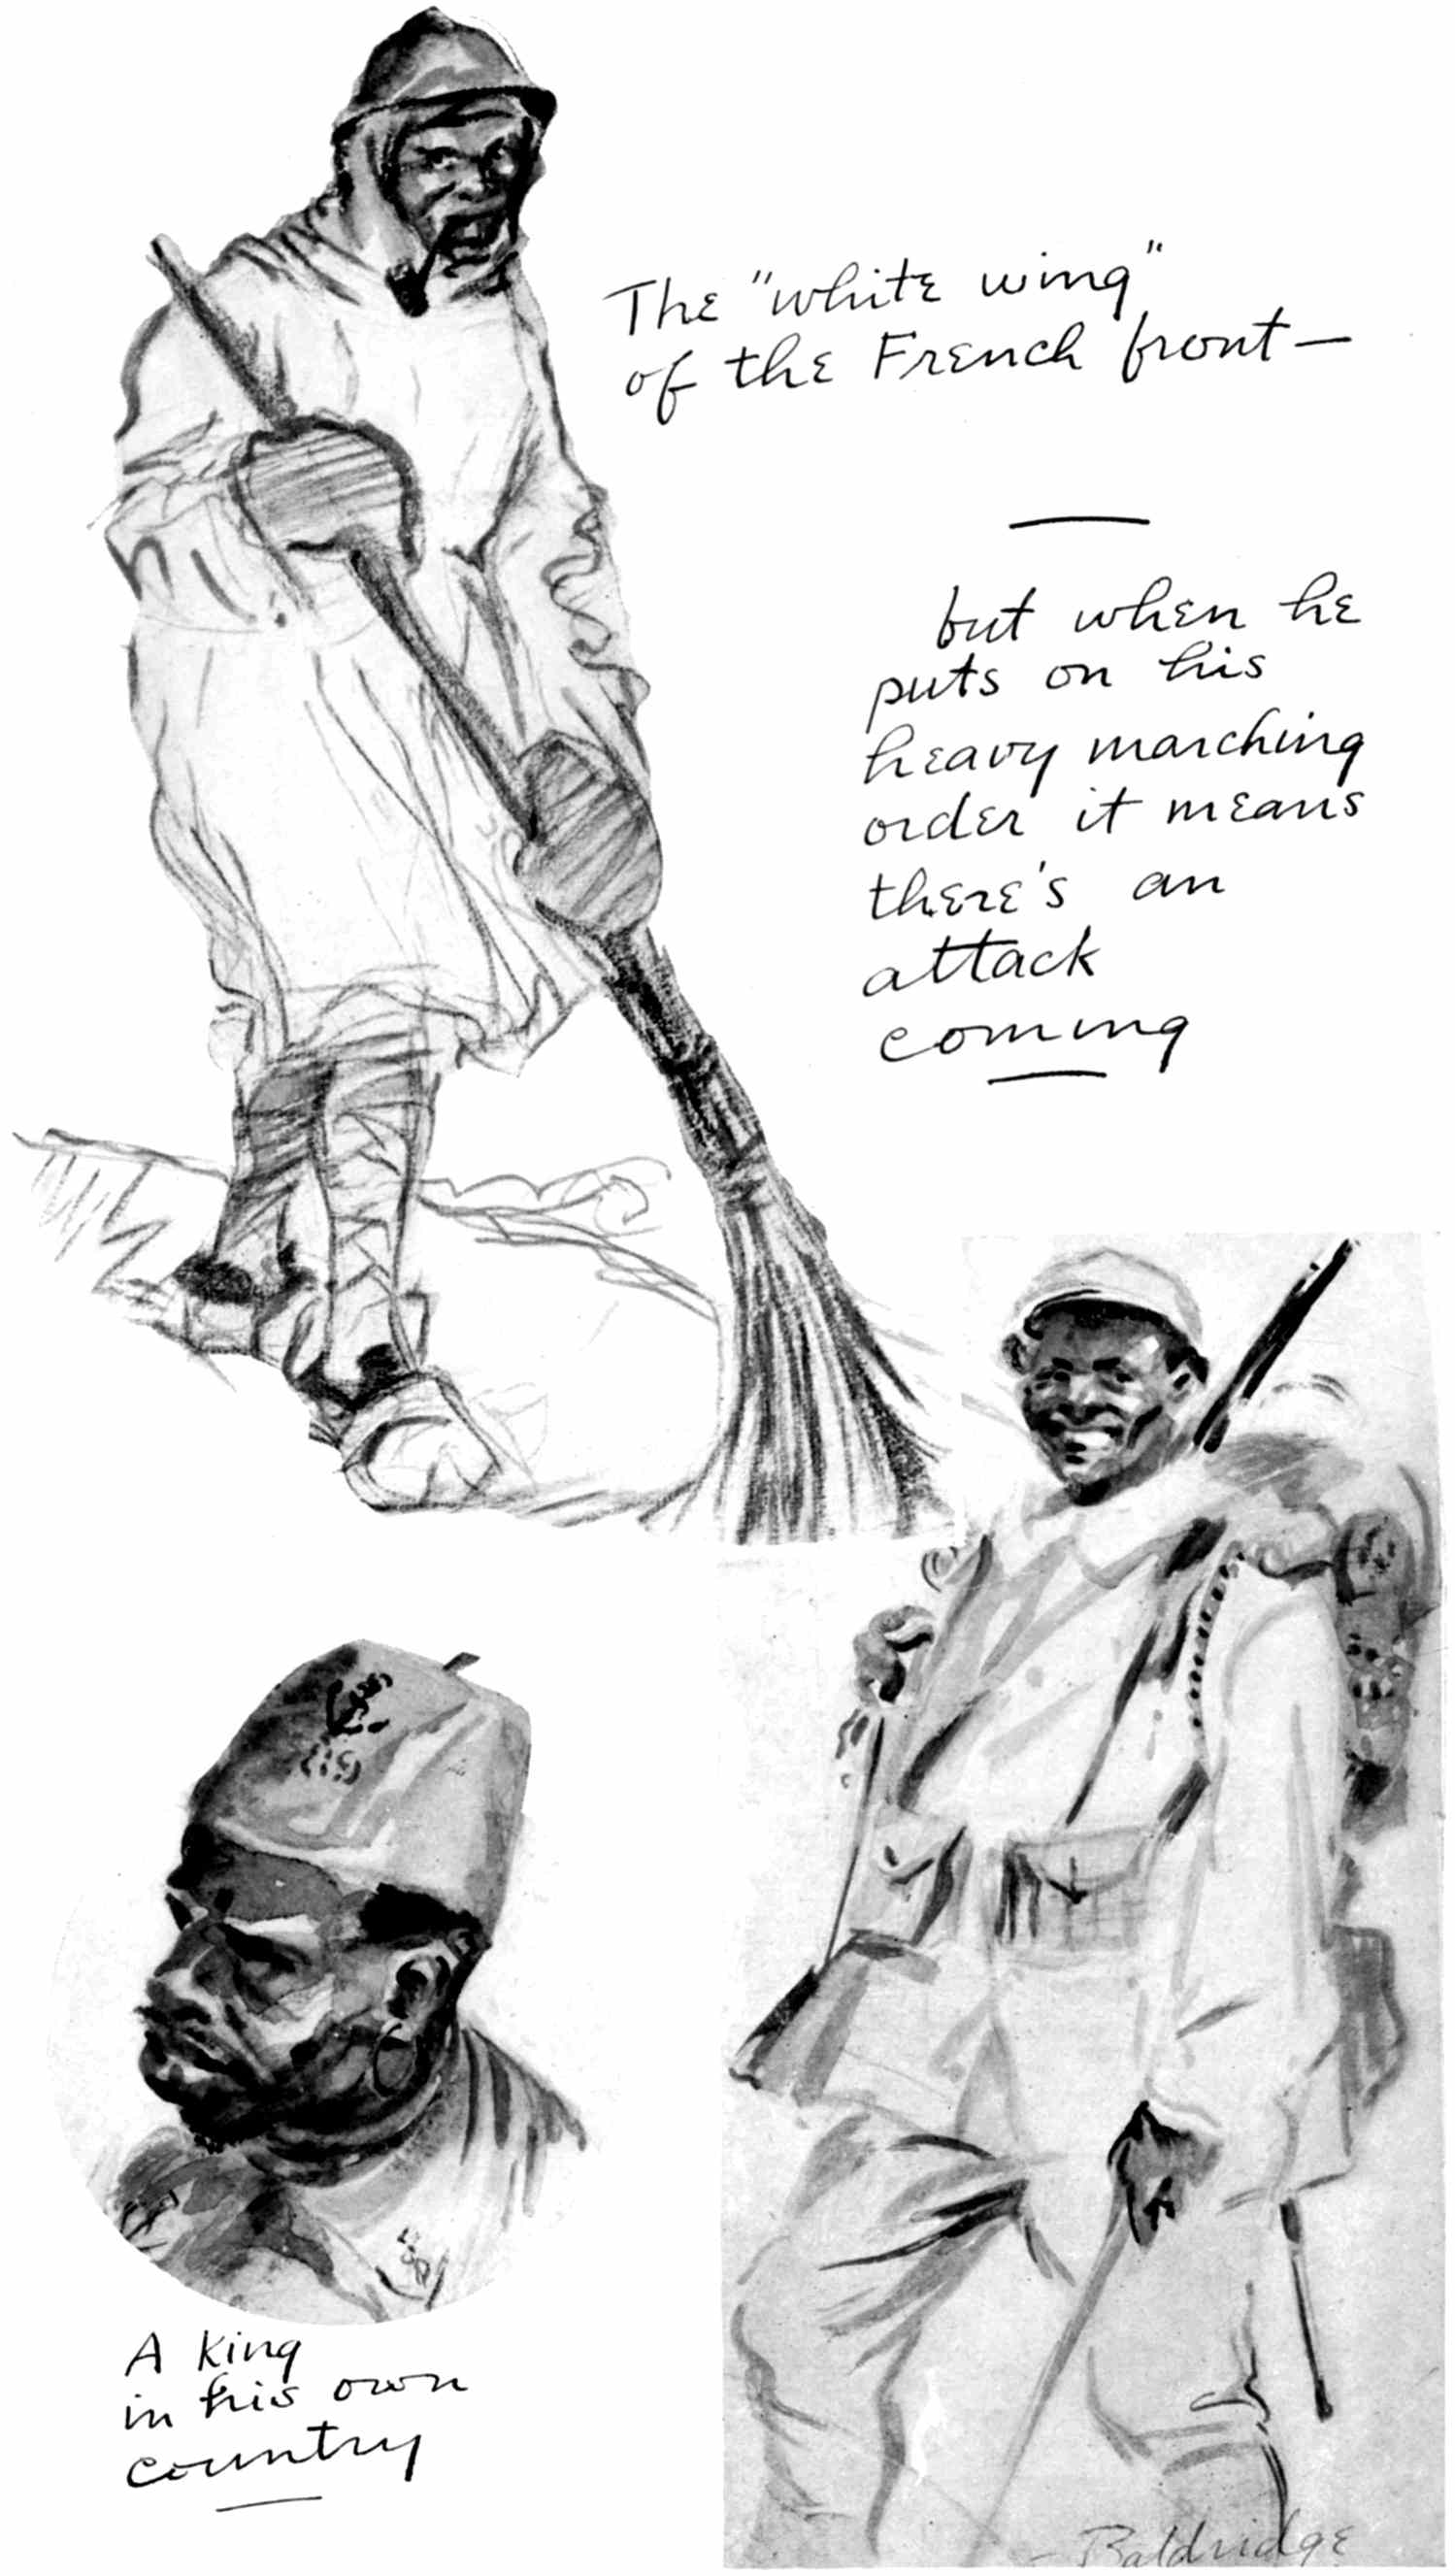 The "white wing"
of the French front—
but when he
puts on his
heavy marching
order it means
there's an
attack
coming
89
A king
in his own
country
- Baldridge